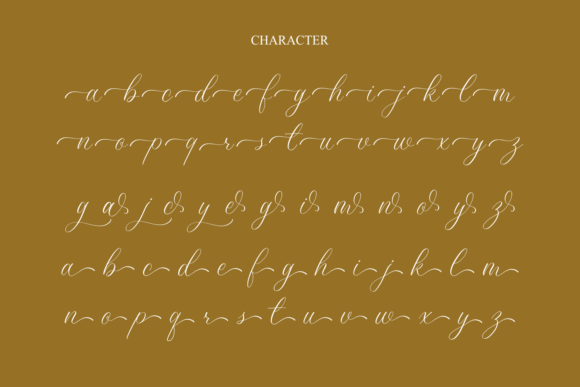 CHARACTER
a b c d e f g h i j k l m
n o p q r s t u v w x y z
g as j cs y es gs is ms ns os ys zs
a b c d e f g h i j k l m
n o p q r s t u v w x y z